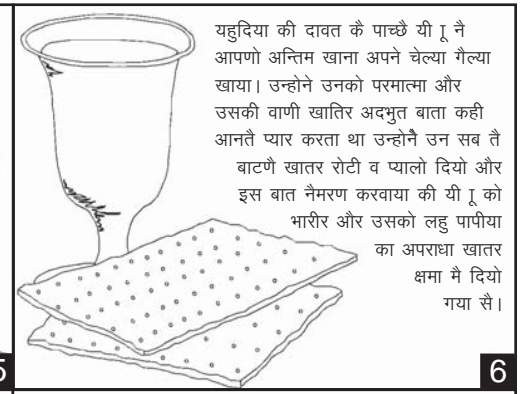 यहुदिया की दावत कै पाच्छै यी ाू नै
आपणो अन्तिम खाना अपने चेल्या गैल्या
खाया। उन्होने उनको परमात्मा और
उसकी वाणी खातिर अदभुत बाता कही
आनतै प्यार करता था उन्होनेै उन सब तै
बाटणै खातर रोटी व प्यालो दियो और
इस बात नैमरण करवाया की यी ाू को
भारीर और उसको लहु पापीया
का अपराधा खातर
क्षमा मै दियो
गया सै।
5
6